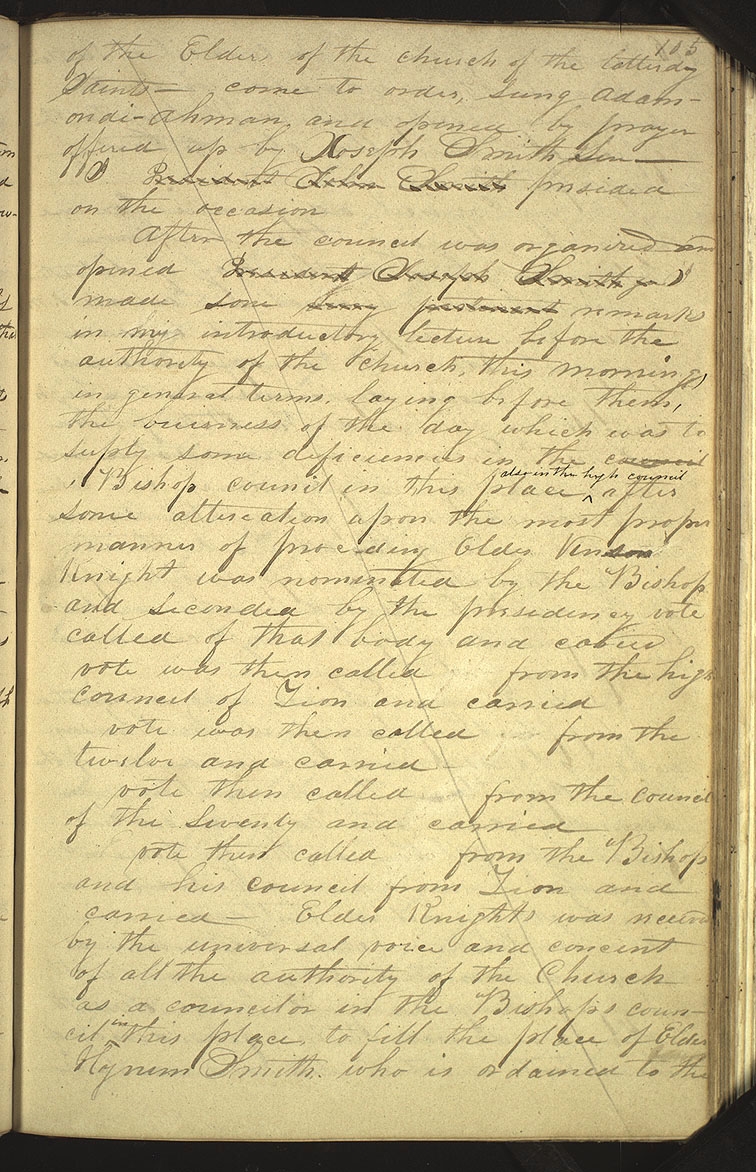 105
of the Elders of the church of the latterday
Saints— come to order, sung Adam-
ondi-Ahman and opened by prayer
offered up by Joseph Smith Sen—
I President John Smith presided
on the occasion
After the council was organized and
opened President Joseph Smith jr I
made some very pertinent remarks
in my introductory lecture before the
authority of the church, this morning,
in general terms, laying before them,
the buisness of the day which was to
suply some deficiences in the council
Bishop council in this place also in the high council after
some altercation upon the most proper
manner of proceding Elder Vinson
Knight was nominated by the Bishop
and seconded by the presidency vote
called of that body and caried
vote was then called from the high
council of Zion and carried
vote was then called from the
twelve and carried—
vote then called from the council
of the Seventy and carried
vote then called from the Bishop
and his council from Zion and
carried— Elder Knights was receivd
by the universal voice and concent
of all the authority of the Church
as a councilor in the Bishops coun-
cil in this place, to fill the place of Elder
Hyrum Smith. who is ordained to the